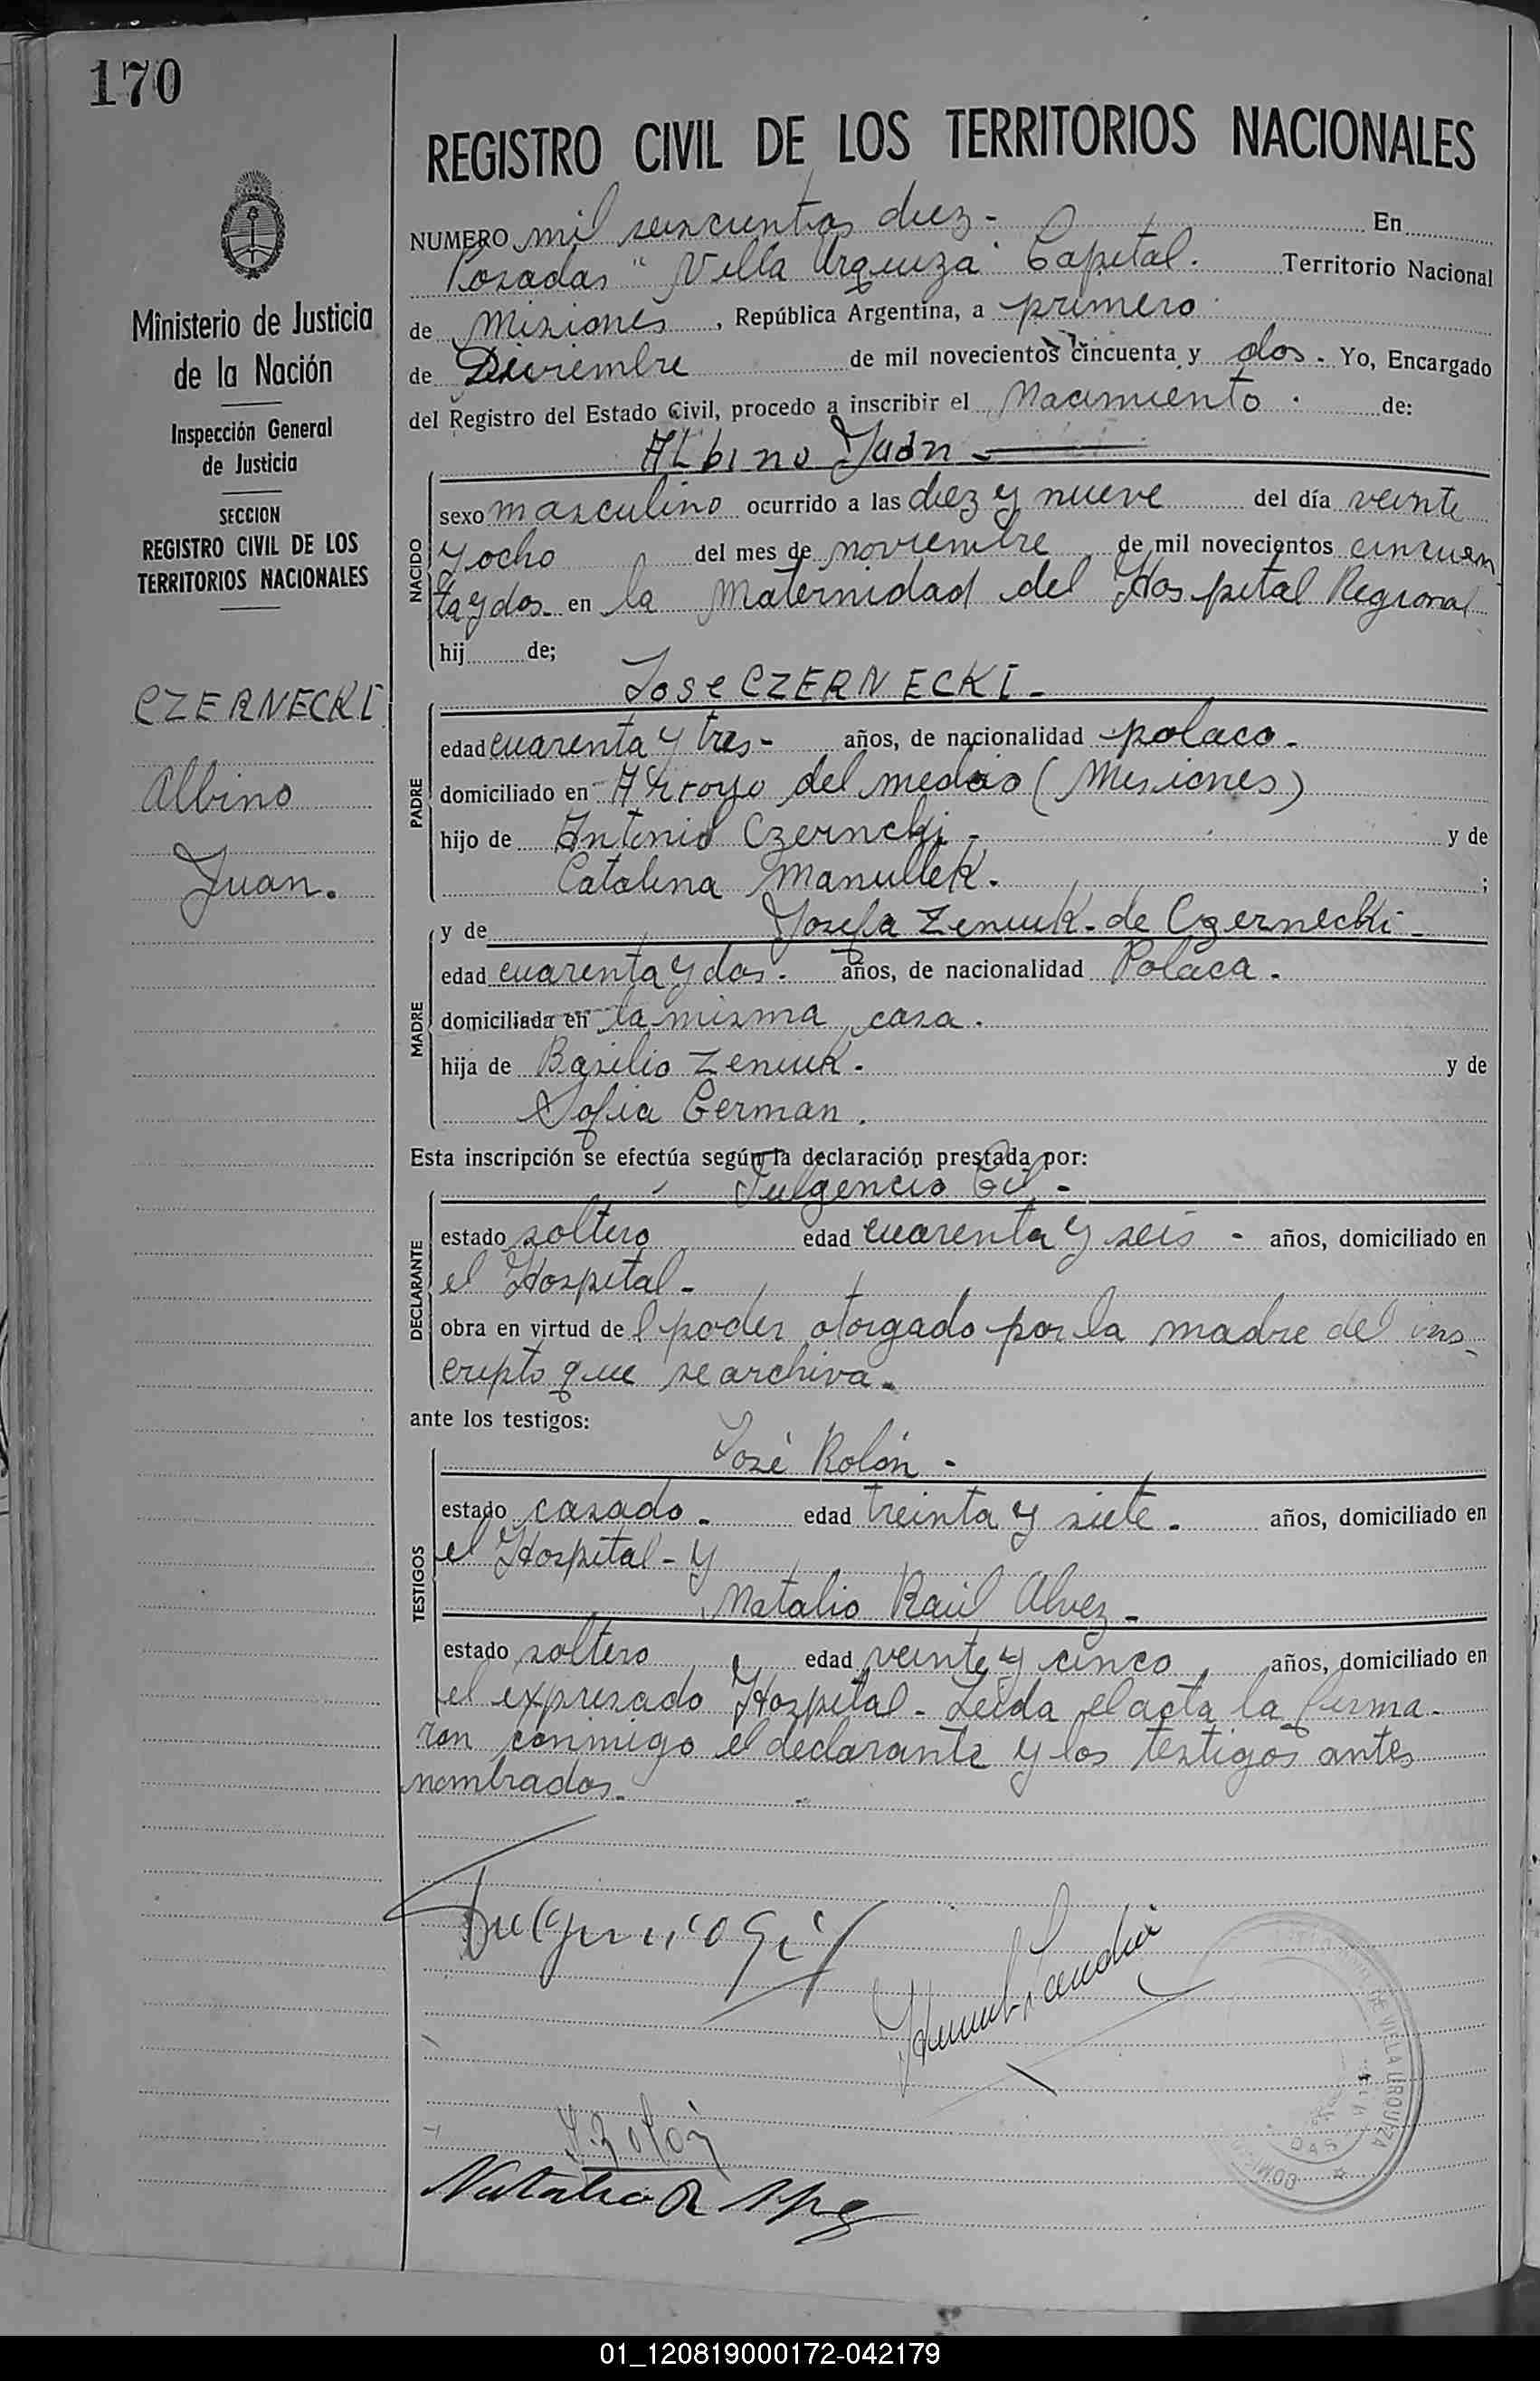 170
REGISTRO CIVIL DE LOS TERRITORIOS NACIONALES
Ministerio de Justicia
de la Nación
Inspección General
de Justicia
SECCION
REGISTRO CIVIL DE LOS
TERRITORIOS NACIONALES
CZERNECKI
Albino
Juan.
NUMERO mil seiscientos diez - En
Posadas "Villa Urquiza" Capital. Territorio Nacional
de Misiones, República Argentina, a primero
de Diciembre de mil novecientos cincuenta y dos. Yo, Encargado
del Registro del Estado Civil, procedo a inscribir el Nacimiento. de:
Albino Juan -
NACIDO
sexo masculino ocurrido a las diez y nueve del día veinte
y ocho del mes de noviembre de mil novecientos cincuen
ta y dos en la Maternidad del Hospital Regional
hij de;
Jose CZERNECKI -
PADRE
edad cuarenta y tres - años, de nacionalidad polaco -
domiciliado en Arroyo del medio (Misiones)
hijo de Antonio Czerncki - y de
Catalina Manullek. ;
MADRE
y de Josefa Zeniuk de Czernecki -
edad cuarenta y dos. años, de nacionalidad Polaca.
domiciliada en la misma casa.
hija de Basilio Zeniuk. y de
Sofia German.
Esta inscripción se efectúa según la declaración prestada por:
Fulgencio Gil -
DECLARANTE
estado soltero edad cuarenta y seis - años, domiciliado en
el Hospital -
obra en virtud del poder otorgado por la madre del ins
cripto que se archiva.
ante los testigos:
José Rolón -
TESTIGOS
estado casado. edad treinta y siete. años, domiciliado en
el Hospital - y
Natalio Raúl Alvez -
estado soltero edad veinte y cinco, años, domiciliado en
el expresado Hospital - Leida el acta la firma-
ron conmigo el declarante y los testigos antes
nombrados.
Fulgencio Gil
J. Rolón
Natalio R
VILLA URQUIZA
01_120819000172-042179